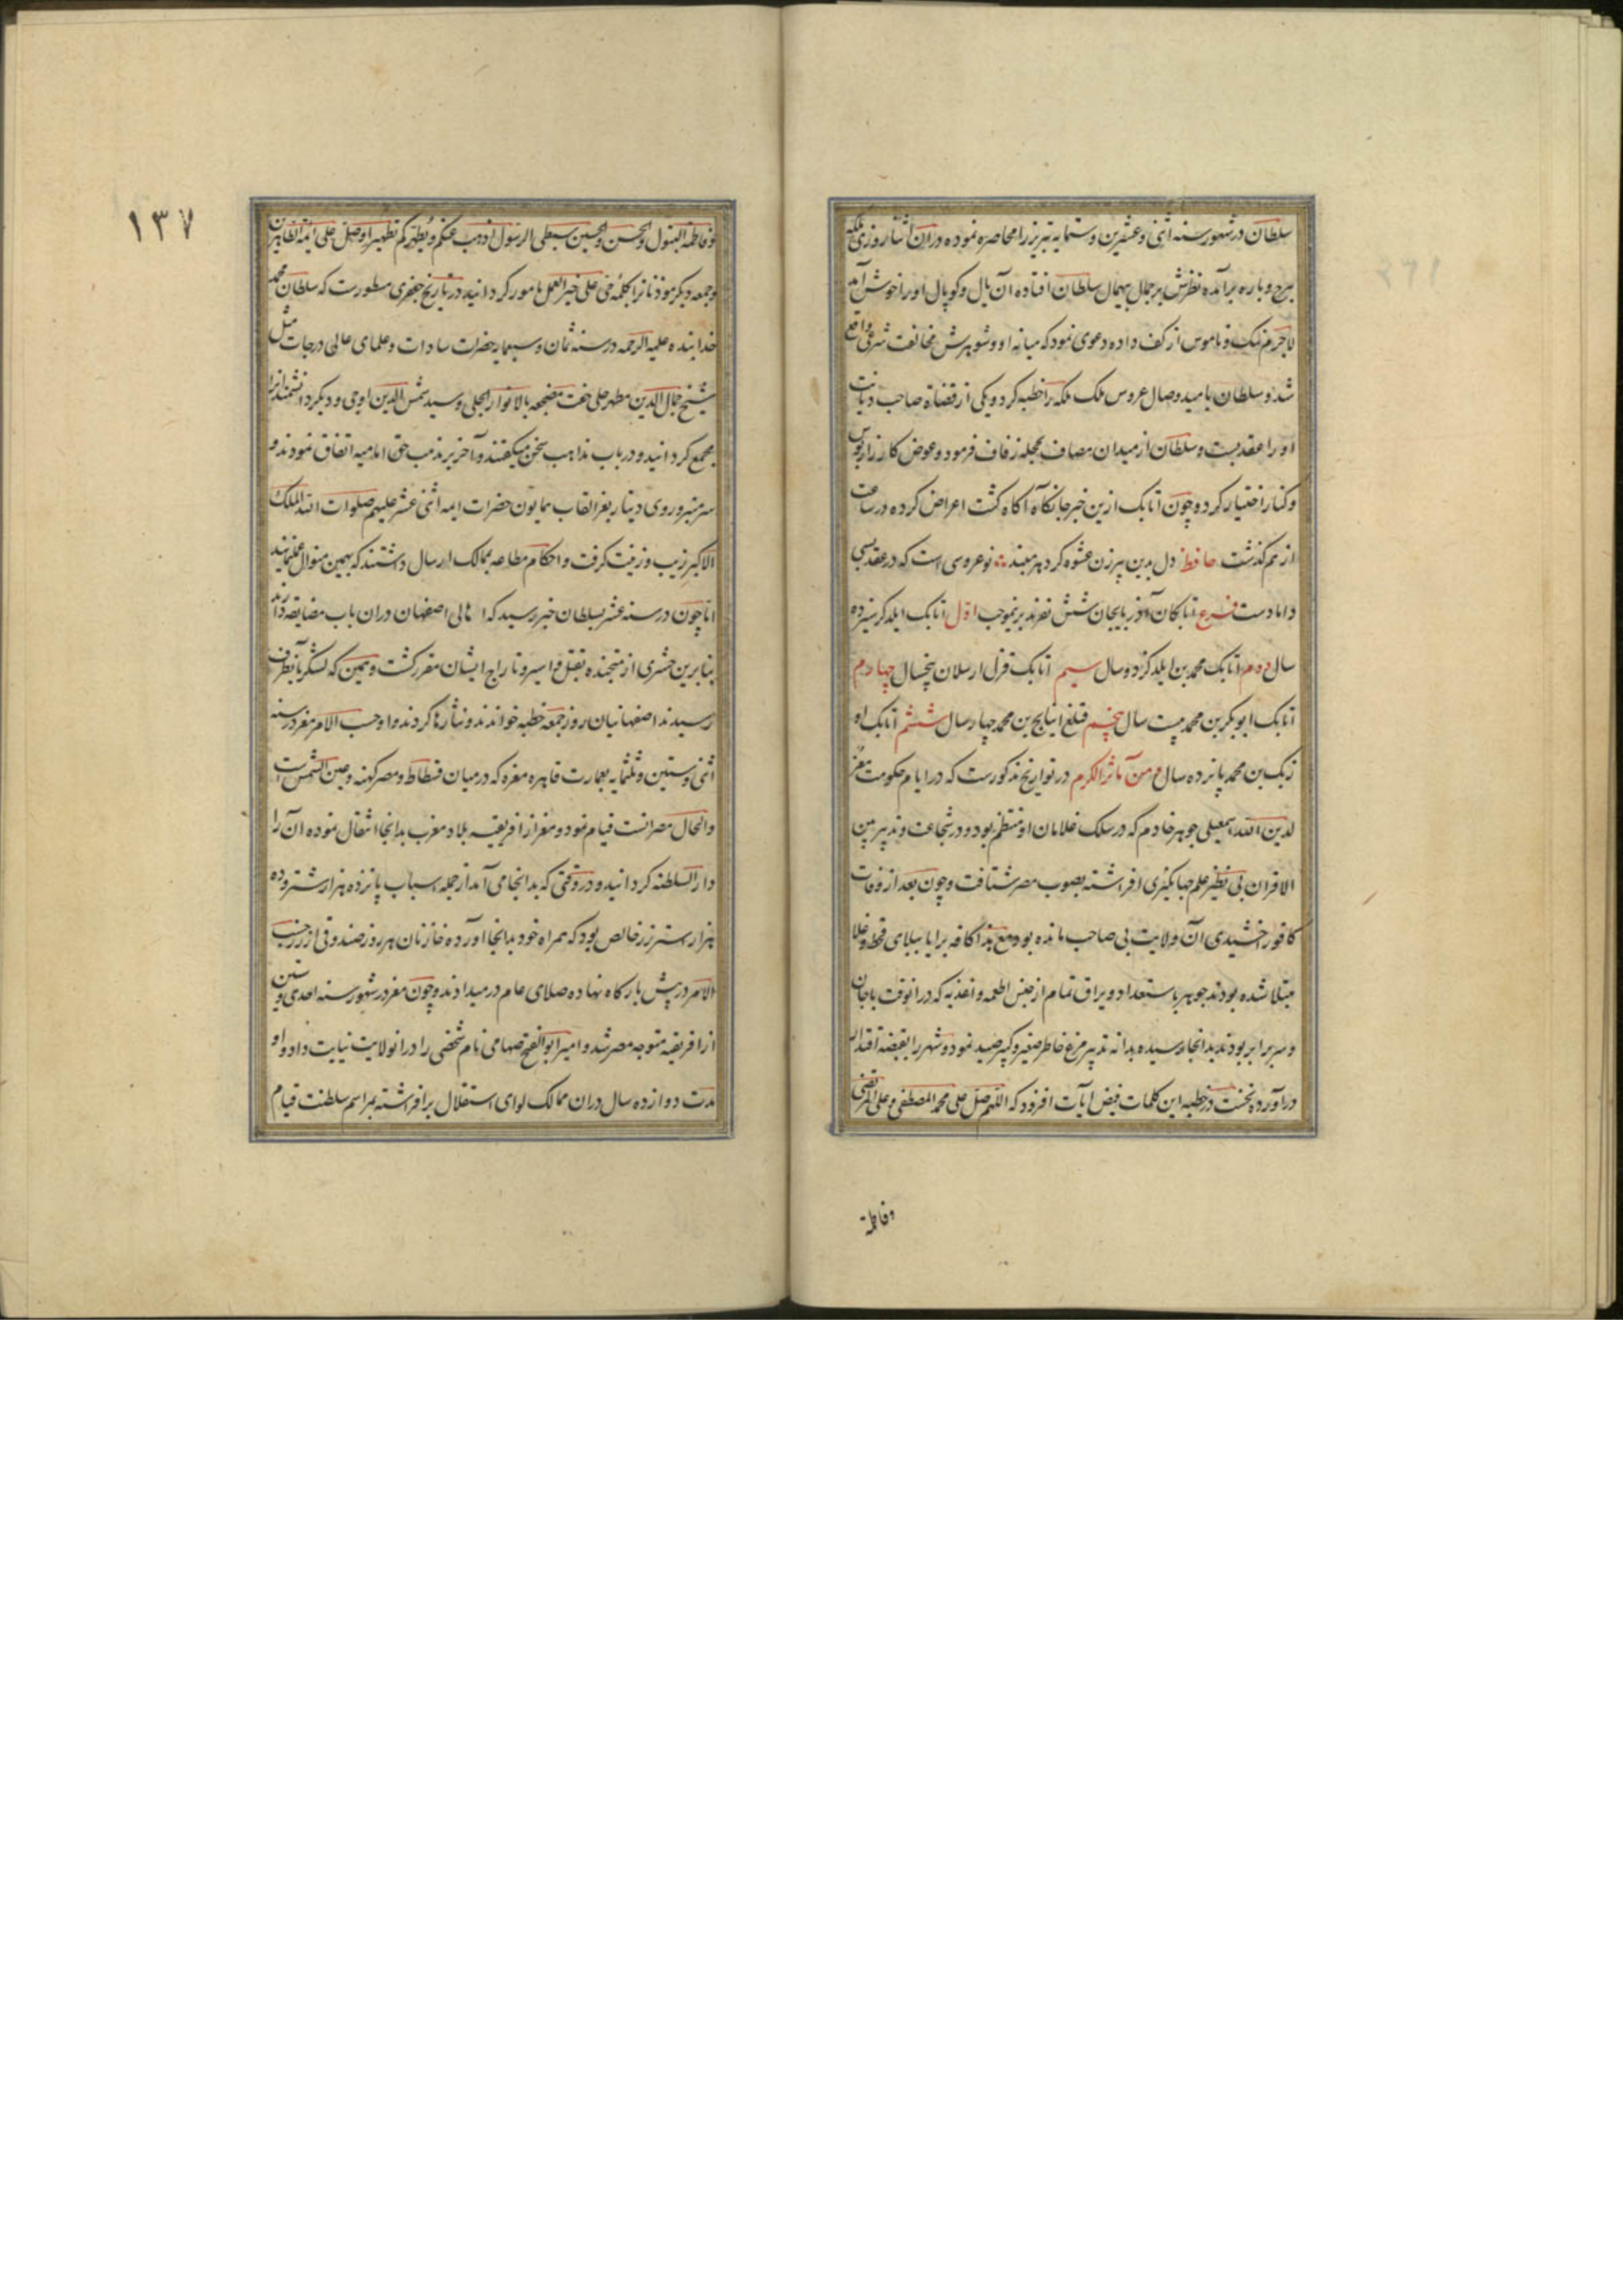 سلطان در شهور سنه اثنی و عشرین و ستمایه تبریز را محاصره نموده در ان اثنا روزی ملکه
ببرج و باره برآمده نظرش بر جمال بیهمال سلطان افتاده آن یال و کوپال او را خوش آمد
لاجرم ننک و ناموس از کف داده دعوی نمود که میانه او و شوهرش مخالفت شرعی واقع
شد و سلطان بامید وصال عروس ملک ملکه را خطبه کرد و یکی از قضاة صاحب دیانت
او را عقد بست و سلطان از میدان مصاف بحجله زفاف فرمود و عوض کارزار بوس
و کنار اختیار کرد و چون اتابک ازین خبر جانکاه آکاه کشت اعراض کرده در ساعت
از هم کذشت حافظ دل بدین پیرزن عشوه کر دهر مبند نوعروسی است که در عقد بسی
دامادست فرع اتابکان آذربایجان شش نفرند برینموجب اول اتابک ایلدکز سیزده
سال دوم اتابک محمد بن ایلدکز ده سال سیم اتابک قزل ارسلان پنجسال چهارم
اتابک ابوبکر بن محمد بیست سال پنجم قتلغ اینانج بن محمد چهار سال ششم اتابک او
زبک بن محمد پانزده سال و من مآثر الکرم در تواریخ مذکورست که در ایام حکومت معز
لدین الله اسمعیلی جوهر خادم که در سلک غلامان او منتظم بود و در شجاعت و تدبیر بین
الاقران بی نظیر علم جهانکیری افراشته بصوب مصر شتافت و چون بعد از وفات
کافور اخشیدی آن ولایت بی صاحب مانده بود مع هذا کافه برایا ببلای قحط و غلا
مبتلا شده بودند جوهر باستعداد و یراق تمام از جنس اطعمه و اغذیه که در انوقت با جان
و سر برابر بودند بدانجا رسیده بدانه تدبیر مرغ خاطر صغیر و کبیر صید نمود و شهر را بقبضه اقتدار
درآورده نخست در خطبه این کلمات فیض آیات افزود که اللهم صل علی محمد المصطفی و علی المرتضی
وفاطمة
۱۳۷
و فاطمة البتول و الحسن و الحسین سبطی الرسول اذهب عنکم و یطهرکم تطهیرا و صل علی ائمة الطاهرین
و جمعه دیکر موذنانرا بکلمه حی علی خیر العمل مامور کردانید در تاریخ جعفری مسطورست که سلطان محمد
خدابنده علیه الرحمه در سنه ثمان و سبعمایه حضرات سادات و علمای عالی درجات مثل
شیخ جمال الدین مطهر حلی مضجعه بالانوار الجلی و سید شمس الدین اوجی و دیکر دانشمندانرا
مجمع کردانید و در باب مذاهب سخن میکفتند و آخر بر مذهب حق امامیه اتفاق نمودند و
سر منبر و روی دینار بعز القاب همایون حضرات ایمه اثنی عشر علیهم صلوات الله الملک
الاکبر زیب و زینت کرفت و احکام مطاعه بممالک ارسال داشتند که بهمین منوال عمل نمایند
اما چون در سنه عشر بسلطان خبر رسید که اهالی اصفهان در ان باب مضایقه دارند
بنابرین حشری از متجنده بقتل و اسیر و تاراج ایشان مقرر کشت و همین که لشکر بآنطرف
رسیدند اصفهانیان روز جمعه خطبه خواندند و نثارها کردند و اوحب الامر معز در سنه
اثنی و ستین و ثلثمایه بعمارت قاهره معزه که در میان فسطاط و مصر کهنه و عین الشمس است
و الحال مصر انست قیام نمود و معز از افریقیه بلاد مغرب بدانجا انتقال نموده آن را
دار السلطنه کردانید و در وقتی که بدانجا می آمد از جمله اسباب پانزده هزار شتر و ده
هزار استر زر خالص بود که همراه خود بدانجا آورده خازنان هر روز صندوقی از زر حسب
الامر در پیش بارکاه نهاده صلای عام در میدادند و چون معز در شهور سنه احدی و ستین
از افریقیه متوجه مصر شد و امیر ابو الفتح صنهاجی نام شخصی را در انولایت نیابت داد و او
مدت دوازده سال در ان ممالک لوای استقلال برافراشته بمراسم سلطنت قیام